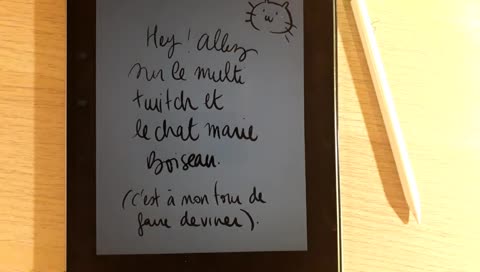 Hey! Allez
sur le multi
twitch et
le chat marie
Boiseau.
(c'est à mon tour de
faire deviner).